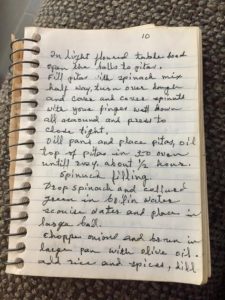 10
In light floured table load
open the balls to pitas.
Fill pitas with spinach mix
half way, turn over
and cover and cover spinach
with your finger well down
all around and press to
close tight.
Oil pans and place pitas, oil
top of pitas in 350 oven
until rosy, about ½ hour.
Spinach filling
Drop spinach and
green in boilin water
water and place in
large
Chopp onions and brown in
large pan with olive oil.
add rice and spices, dill